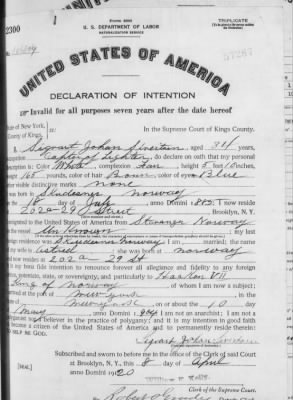 Form 2203
TRIPLICATE
2300
U. S. DEPARTMENT OF LABOR
NATURALIZATION SERVICE
UNITED STATES OF AMERICA
DECLARATION OF INTENTION
Invalid for all purposes seven years after the date hereof
State of New York,
County of Kings,
In the Supreme Court of Kings County.
Johan aged 34 years,
occupation of Lighter, do declare on oath that my personal
description is: Color White, complexion Fair, height 5 feet 10 inches,
weight 165 pounds, color of hair Brown color of eyes Blue
other visible distinctive marks none
I was born in Norway
on the 18 day of July, anno Domini; I now reside
at 202a 29 Street Brooklyn, N. Y.
I emigrated to the United States from Stavanger Norway
on the vessel Unknown; my last
foreign residence was Norway I am married; the name
of my wife is; she was born at Norway
and now resides at 202a 29 St
It is my bona fide intention to renounce forever all allegiance and fidelity to any foreign
prince, potentate, state, or sovereignty, and particularly to Haakon VII
King of Norway, of whom I am now a subject;
I arrived at the port of New York, in the
State of New York, on or about the 10 day
of May, anno Domini; I am not an anarchist; I am not a
polygamist nor a believer in the practice of polygamy; and it is my intention in good faith
to become a citizen of the United States of America and to permanently reside therein:
SO HELP ME GOD.
Johan
Subscribed and sworn to before me in the office of the Clerk of said Court
at Brooklyn, N. Y., this 8 day of April
anno Domini 1920
[SEAL]
Clerk of the Supreme Court.